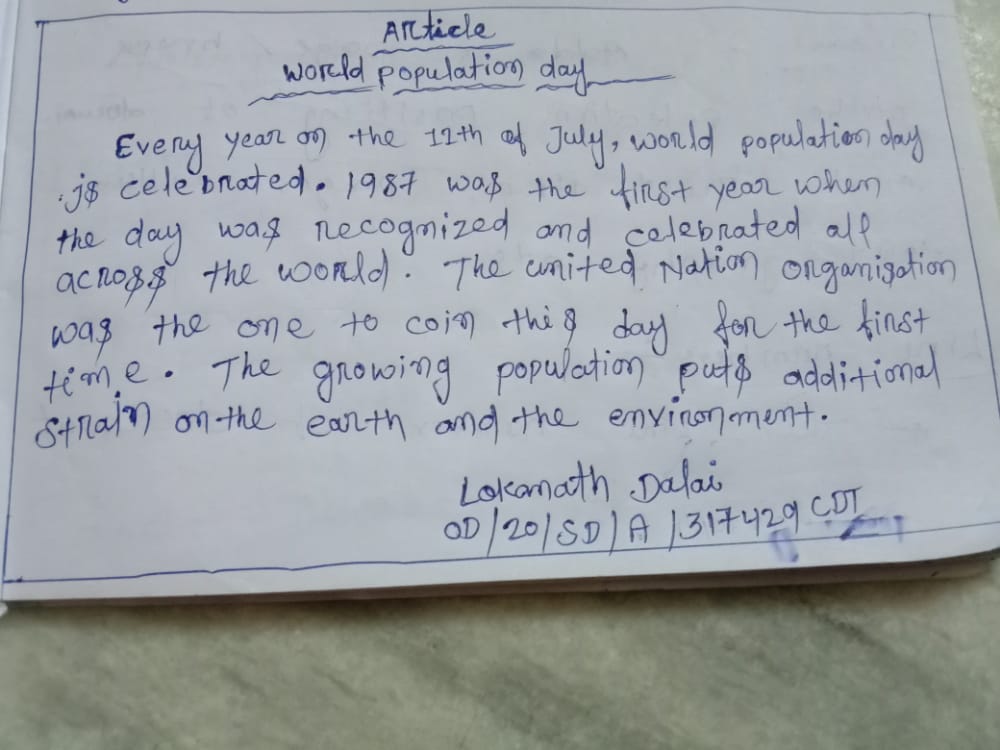 Article
World population day
Every year on the 11th of July, world population day
is celebrated. 1987 was the first year when
the day was recognized and celebrated all
across the world. The united Nation organisation
was the one to coin this day for the first
time. The growing population puts additional
strain on the earth and the environment.
Lokanath Dalai
OD/20/SD/A/317429 CDT